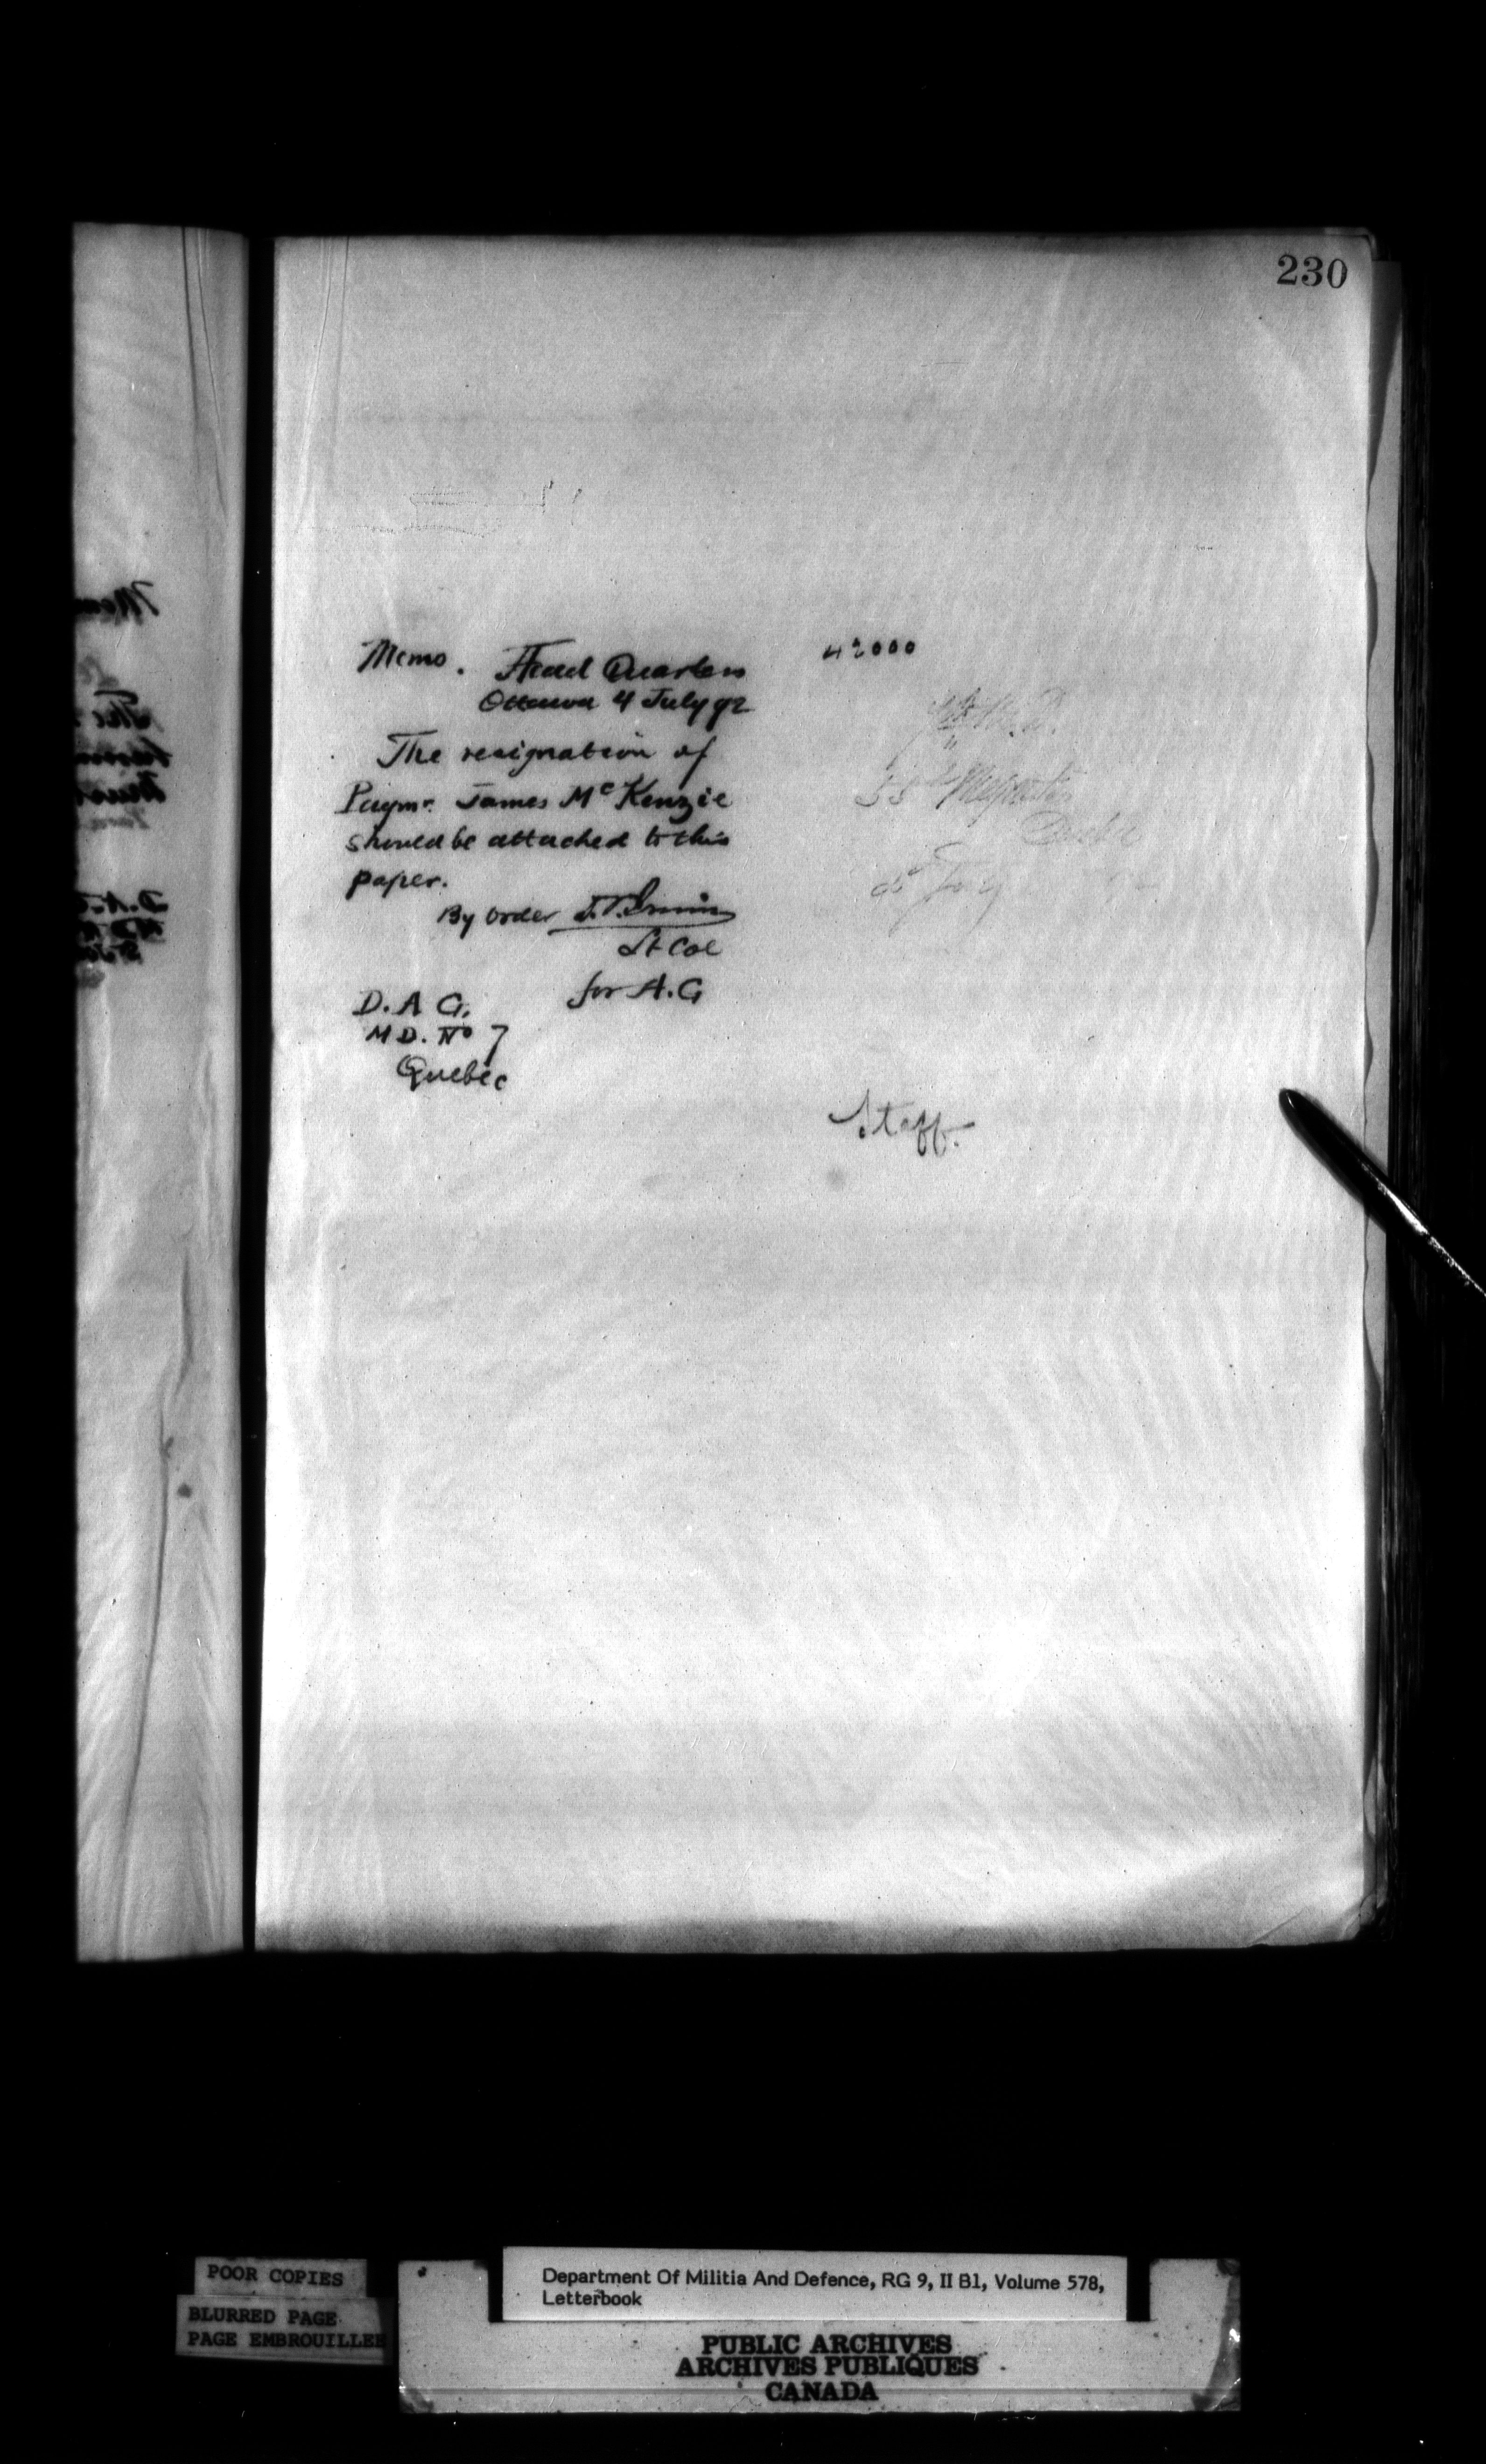 230
Memo. Head Quarters
Ottawa 4 July 92
The resignation of
Paymr. James McKenzie
should be attached to this
paper.
By order
Lt Col
for A.G
D. A G.
M D. No 7
Quebec
42000
55
July
Staff.
POOR COPIES
BLURRED PAGE
PAGE EMBROUILLEE
Department Of Militia And Defence, RG 9, II B1, Volume 578,
Letterbook
PUBLIC ARCHIVES
ARCHIVES PUBLIQUES
CANADA